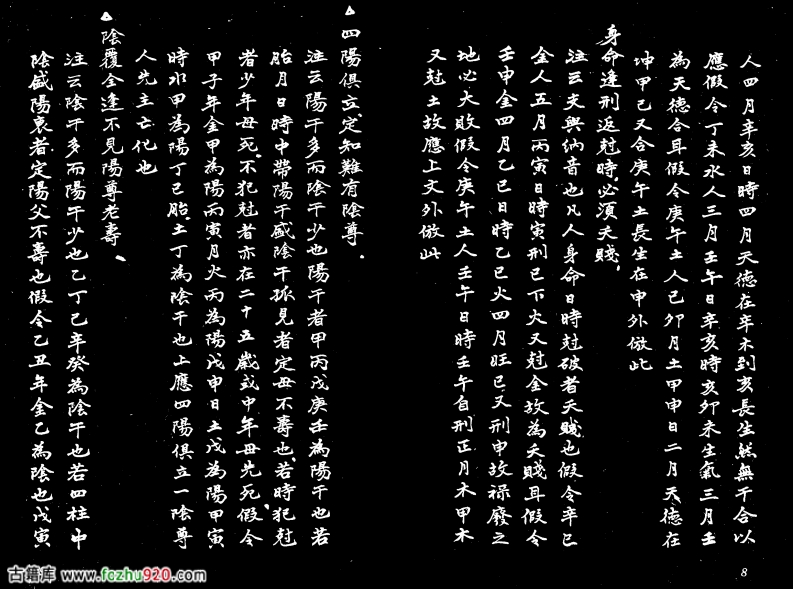 人四月辛亥日時四月天德在辛木到亥長生然無干合以
應假令丁未水人三月壬午日辛亥時亥卯未生氣三月壬
為天德合耳假令庚午土人己卯月土甲申日二月天德在
坤甲己又合庚午土長生在申外倣此
身命逢刑返尅時必須夭賤
注云支與納音也凡人身命日時尅破者夭賤也假令辛巳
金人五月丙寅日時寅刑巳下火又尅金故為夭賤耳假令
壬申金四月乙巳日時乙巳火四月旺巳又刑申故祿廢之
地必大敗假令庚午土人壬午日時壬午自刑正月木甲木
又尅土故應上文外倣此
四陽俱立定知難有陰尊
注云陽干多而陰干少也陽干者甲丙戊庚壬為陽干也若
胎月日時中帶陽干盛陰干孤見者定母不壽也若時犯尅
者少年母死不犯尅者亦在二十五歲或中年母先死假令
甲子年金甲為陽丙寅月火丙為陽戊申日土戊為陽甲寅
時水甲為陽丁巳胎土丁為陰干也上應四陽俱立一陰尊
人先主亡化也
陰覆全逢不見陽尊老壽
注云陰干多而陽干少也乙丁己辛癸為陰干也若四柱中
陰盛陽衰者定陽父不壽也假令乙丑年金乙為陰也戊寅
8
古籍库 www.fozhu920.com